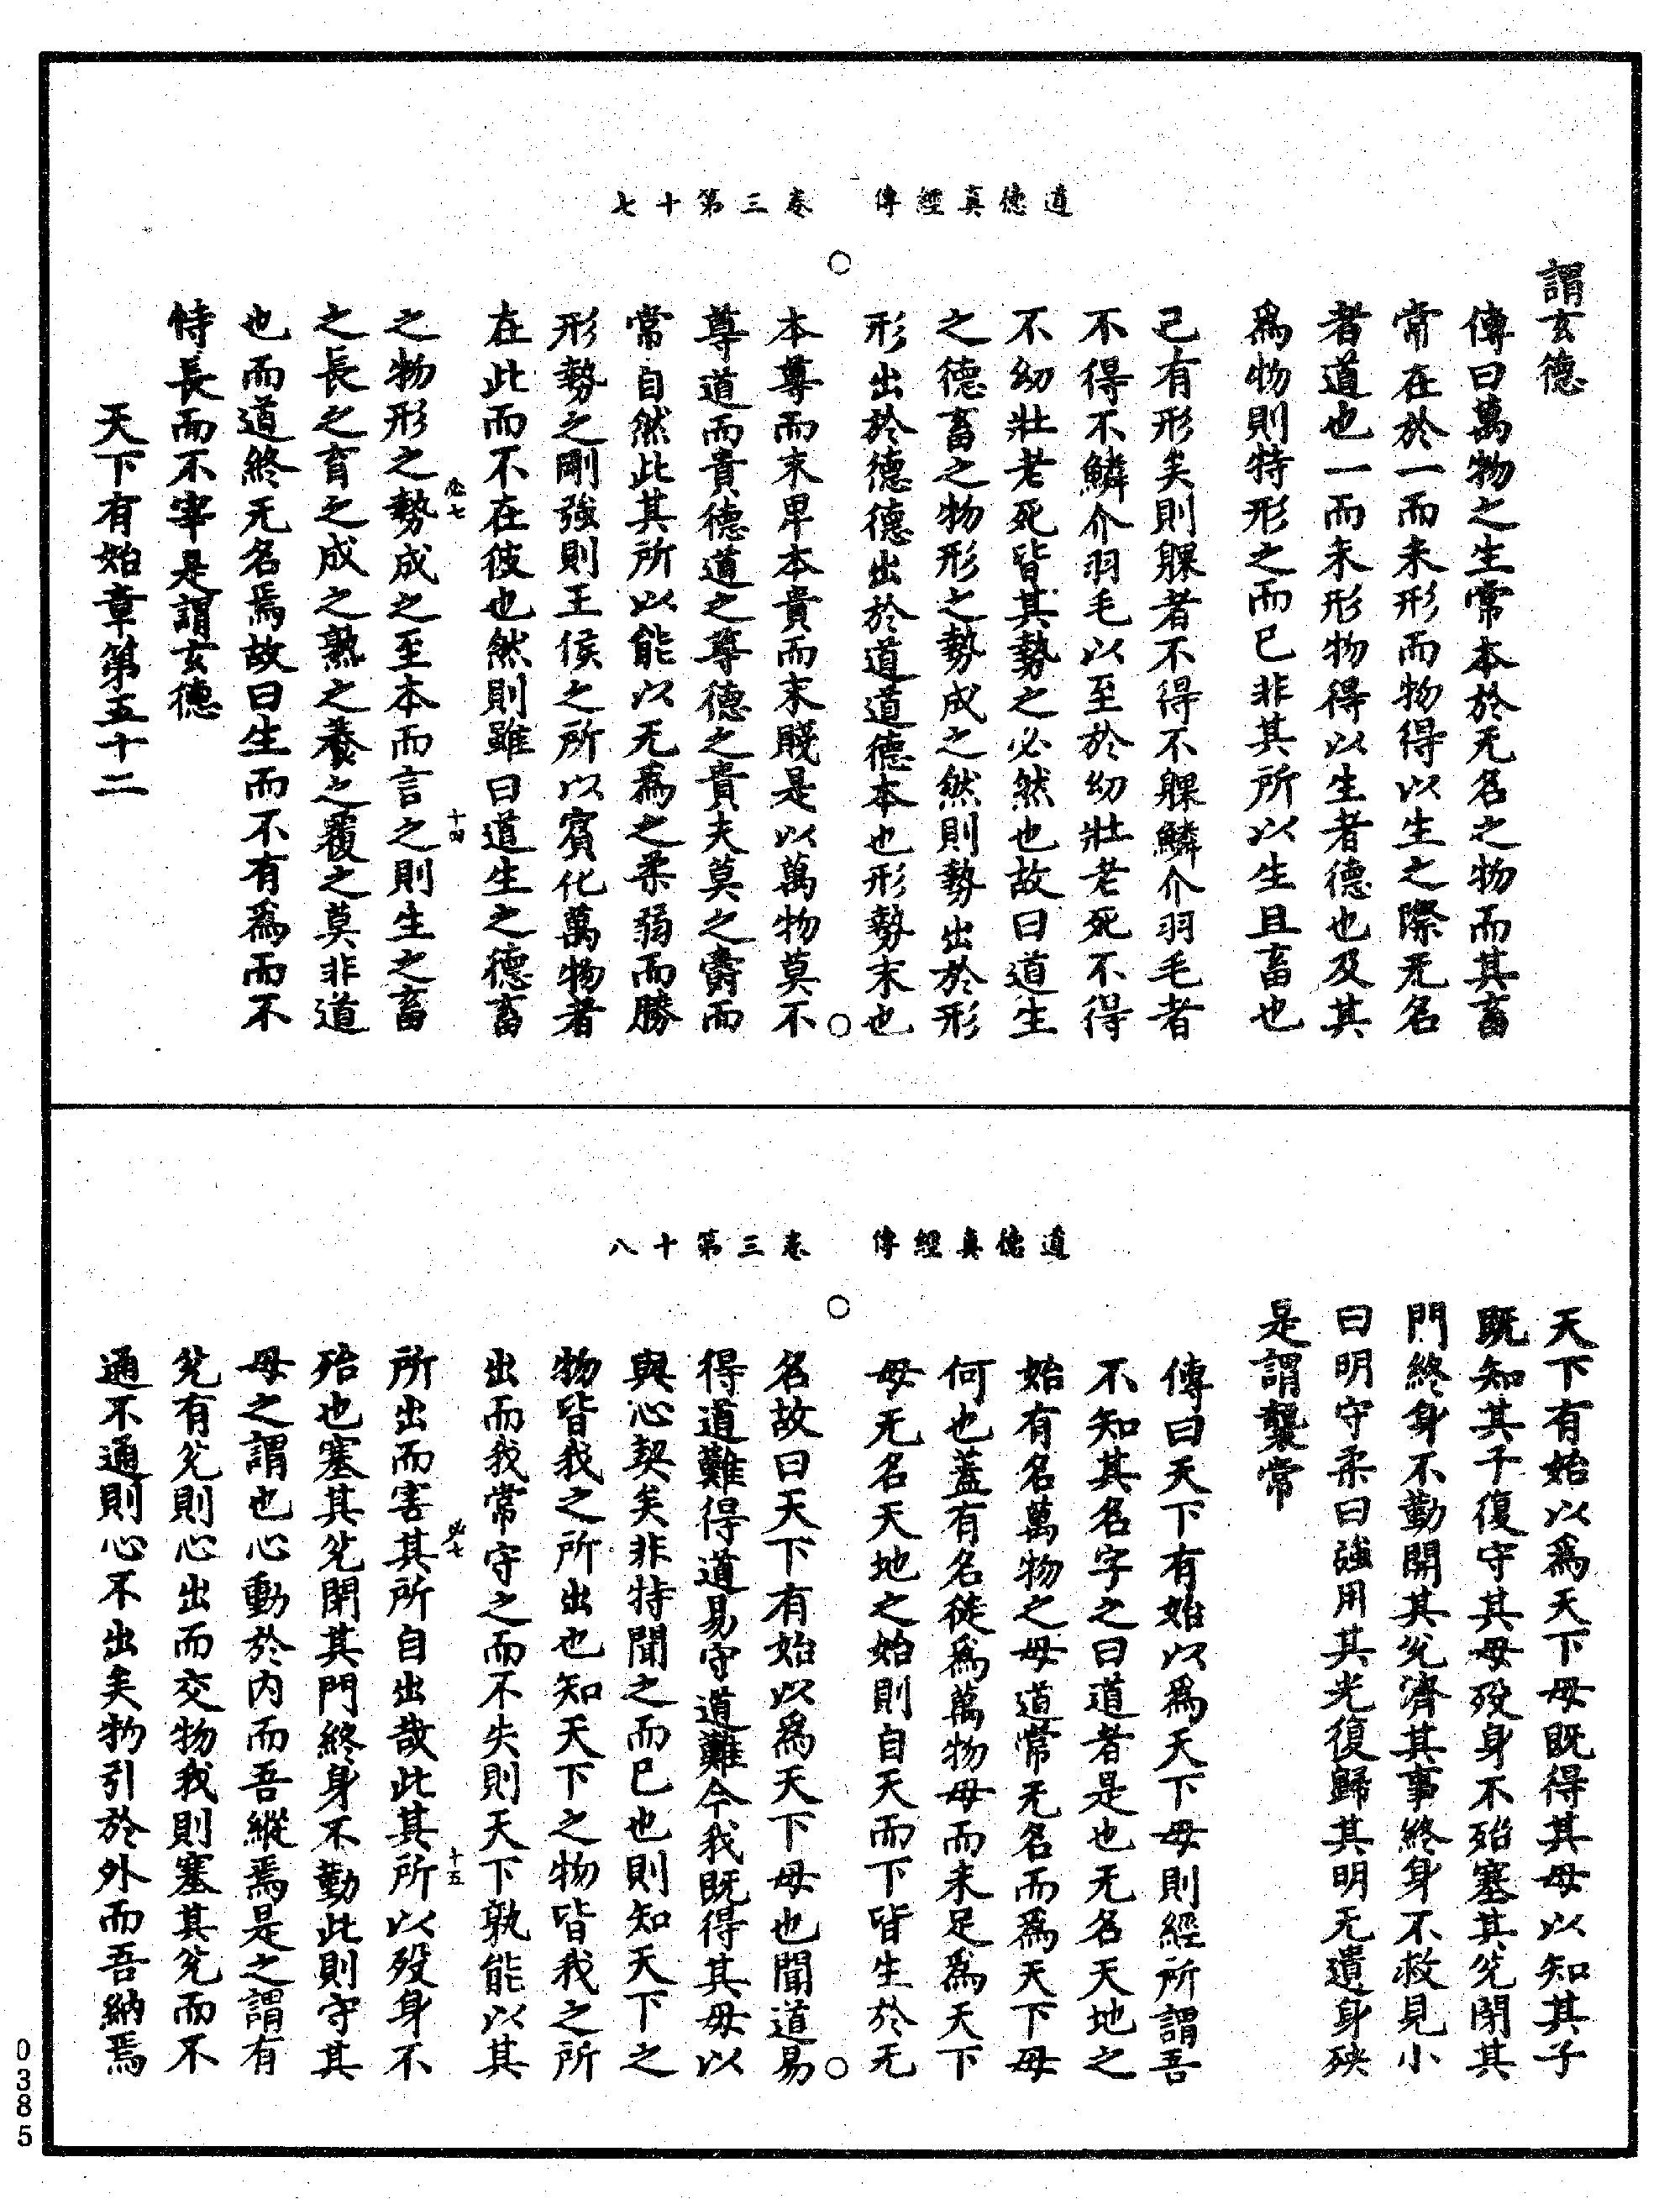 道德真經傳　卷三第十七
謂玄德
傳曰萬物之生常本於无名之物而其畜
常在於一而未形而物得以生之際无名
者道也一而未形物得以生者德也及其
爲物則特形之而已非其所以生且畜也
已有形矣則躶者不得不躶鱗介羽毛者
不得不鱗介羽毛以至於幼壯老死不得
不幼壯老死皆其勢之必然也故曰道生
之德畜之物形之勢成之然則勢出於形
形出於德德出於道道德本也形勢末也
本尊而末卑本貴而末賤是以萬物莫不
尊道而貴德道之尊德之貴夫莫之爵而
常自然此其所以能以无爲之柔弱而勝
形勢之剛強則王侯之所以賓化萬物者
在此而不在彼也然則雖曰道生之德畜
之物形之勢成之至本而言之則生之畜
之長之育之成之熟之養之覆之莫非道
也而道終无名焉故曰生而不有爲而不
恃長而不宰是謂玄德
天下有始章第五十二
必七　十四
道德真經傳　卷三第十八
天下有始以爲天下母既得其母以知其子
既知其子復守其母歿身不殆塞其兊閉其
門終身不勤開其兊濟其事終身不救見小
曰明守柔曰強用其光復歸其明无遺身殃
是謂襲常
傳曰天下有始以爲天下母則經所謂吾
不知其名字之曰道者是也无名天地之
始有名萬物之母道常无名而爲天下母
何也蓋有名徒爲萬物母而未足爲天下
母无名天地之始則自天而下皆生於无
名故曰天下有始以爲天下母也聞道易
得道難得道易守道難今我既得其母以
與心契矣非特聞之而已也則知天下之
物皆我之所出也知天下之物皆我之所
出而我常守之而不失則天下孰能以其
所出而害其所自出哉此其所以歿身不
殆也塞其兊閉其門終身不勤此則守其
母之謂也心動於内而吾縱焉是之謂有
兊有兊則心出而交物我則塞其兊而不
通不通則心不出矣物引於外而吾納焉
必七　十五
0385